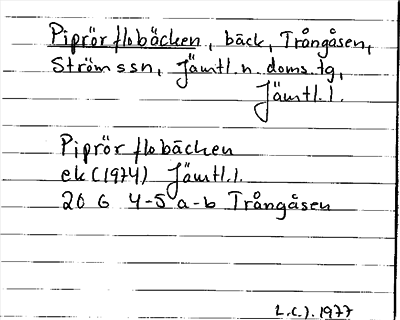 Piprörflobäcken, bäck, Trångåsen,
Ströms sn, Jämtl. n. doms. tg,
Jämtl. l.
Piprörflobäcken
ek (1974) Jämtl. l.
20 G 4-5 a-b Trångåsen
L.C.J. 1977